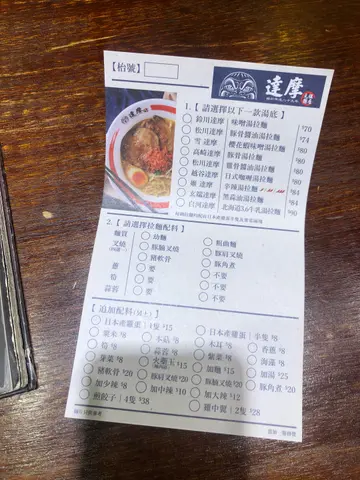 【枱號】
達摩
1.【 請選擇以下一款湯底 】
松川達摩 味噌湯拉麵 $70
松川達摩 豚骨醬油湯拉麵 $74
雪 達摩 櫻花蝦味噌湯拉麵 $80
高崎達摩 豚骨湯拉麵 $80
松川達摩 雞骨醬油湯拉麵 $80
越谷達摩 日式咖喱湯拉麵 $80
達摩 辛辣湯拉麵
太陽達摩 黑蒜油湯拉麵 $84
白河達摩 北海道3.6牛乳湯拉麵 $80
2.【 請選擇拉麵配料 】
麵質 幼麵 粗曲麵
叉燒 豚腩叉燒 豚肩叉燒
豬軟骨 豚角煮
蔥 要 不要
筍 要 不要
蒜蓉 要 不要
【追加配料(純上)】
日本產雞蛋｜1隻 $15 日本產雞蛋｜半隻 $8
粟米 $8 木耳 $8 香蔥 $8
筍 $9 蒜蓉 $8 紫菜 $8 海藻 $8
芽菜 $8 火藥 玉 $15 加麵 $15 加湯 $25
豬軟骨 $20 豚肩叉燒 $20 豚腩叉燒 $20 豚角煮 $20
加少辣 $8 加中辣 $10 加大辣 $12
煎餃子｜4隻 $38 $28